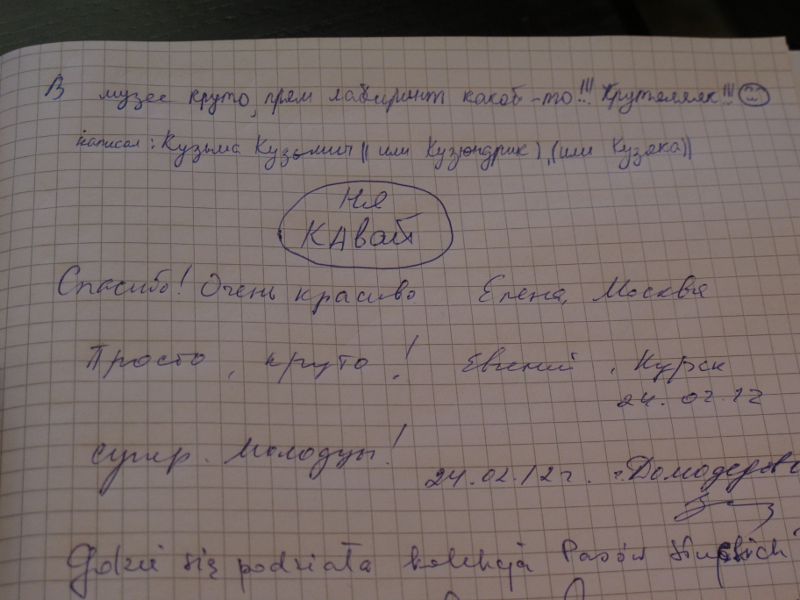 В музее круто, прям лабиринт какой-то!!! Крутяяяк!!!
написал: Кузьма Кузьмич (( или Кузюндрик), (или Кузяка))
НЯ
КАВАЙ
Спасибо! Очень красиво Елена, Москва
Просто, круто! Евгений, Курск
24.02.12
супер. Молодцы!
24.02.12г. г. Домодедово
Gdzie się podziała kolekcja Pasów